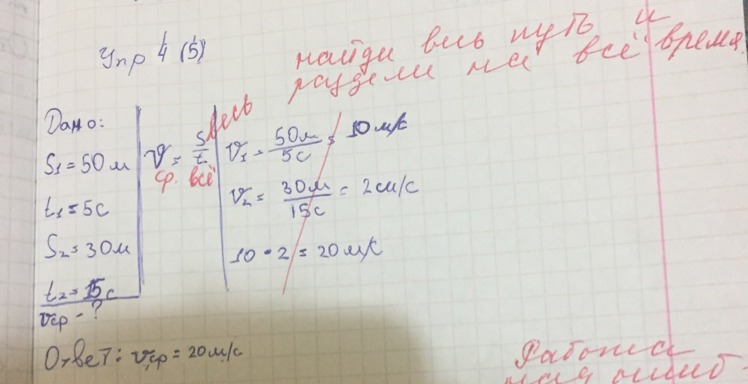 Упр 4 (5)
найди весь путь и
раздели на всё время.
Дано:
S₁ = 50 м
t₁ = 5с
S₂ = 30м
t₂ = 15с
vср - ?
v = S/t
ср.
весь
всё
v₁ = 50м/5с = 10 м/с
v₂ = 30м/15с = 2 см/с
10 · 2 = 20 м/с
Ответ: vср = 20 м/с
Работа
ошиб